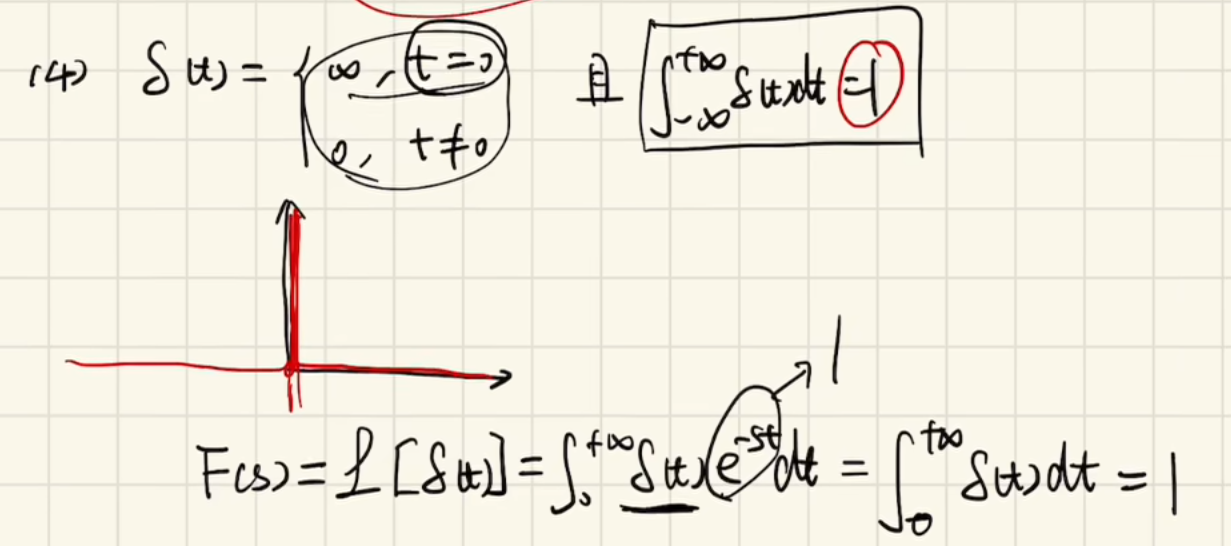 (4) δ(t) = { ∞, t=0 且 ∫_{-∞}^{+∞} δ(t)dt =1
0, t≠0
1
F(s) = ℒ[δ(t)] = ∫_0^{+∞} δ(t) e^{-st} dt = ∫_0^{+∞} δ(t)dt = 1